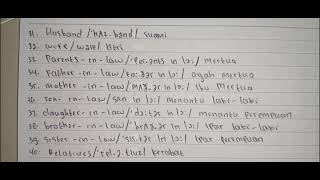 31. Husband /'hʌz.bənd/ suami
32. wife / waɪf/ Istri
33. Parents-in-law/'per.ənts ɪn lɔː/ mertua
34. Father-in-law/'fɑː.ðər ɪn lɔː/ ayah mertua
35. mother-in-law/'mʌð.ər ɪn lɔː/ Ibu mertua
36. son-in-law/sʌn.ɪn lɔː/ menantu laki-laki
37. daughter-in-law/'dɔː.tər ɪn lɔː/ menantu perempuan
38. brother-in-law/'brʌð.ər ɪn lɔː/ Ipar laki-laki
39. sister-in-law/'sɪs.tər ɪn lɔː/ Ipar perempuan
40. Relatives/'rel.ə.tɪvz/ kerabat